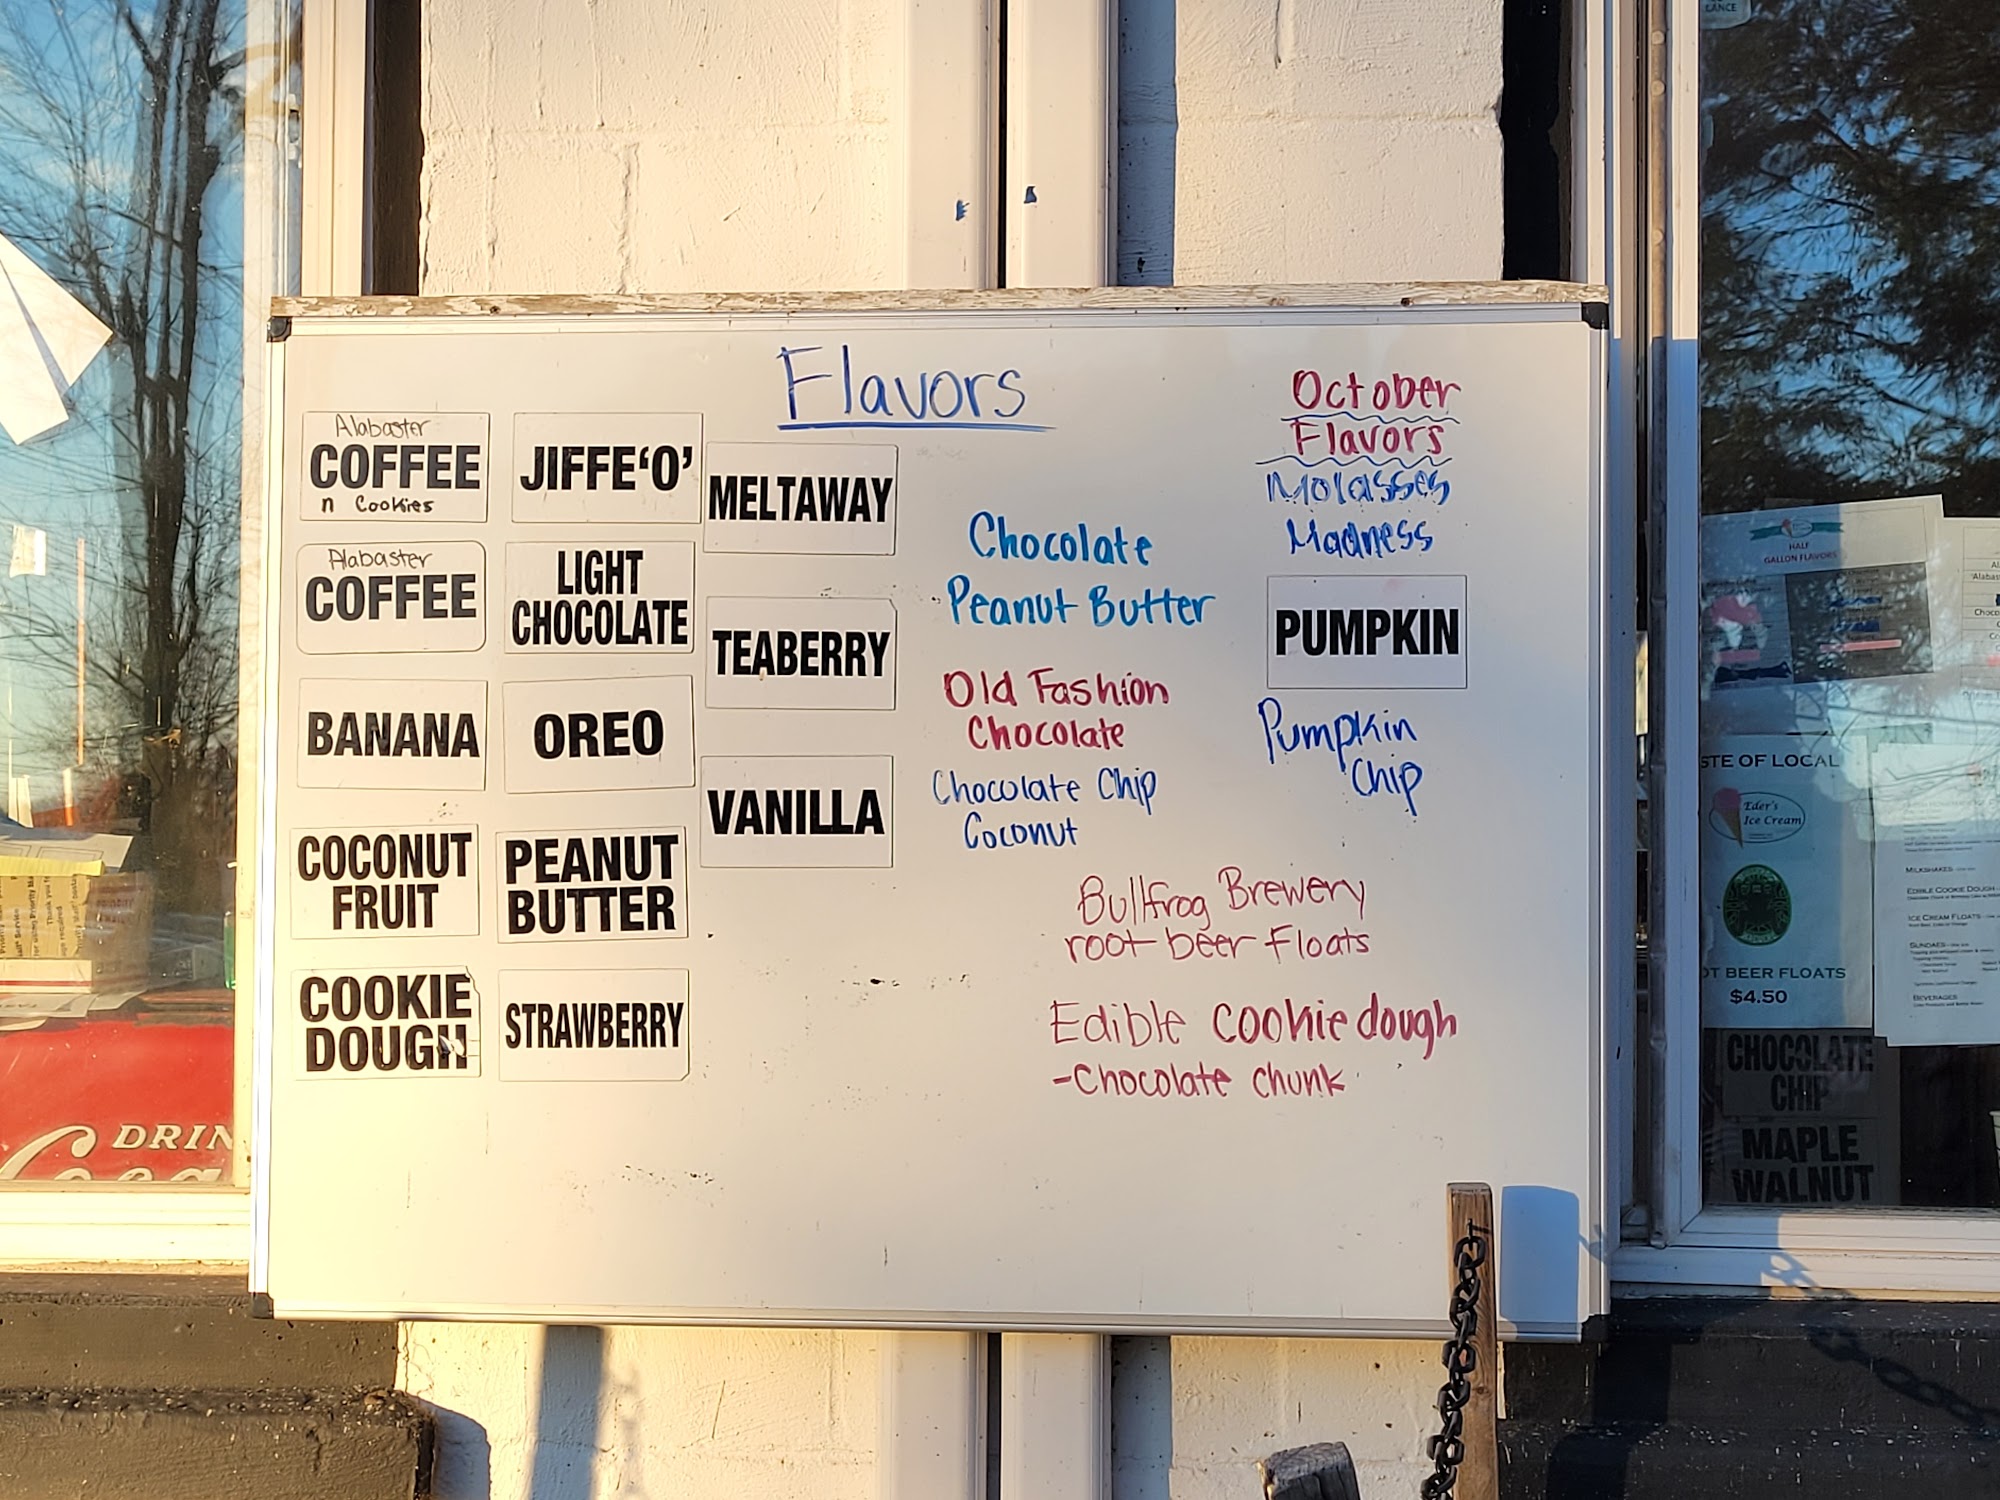 Flavors
Alabaster
COFFEE
n Cookies
Alabaster
COFFEE
BANANA
COCONUT
FRUIT
COOKIE
DOUGH
JIFFE‘O’
LIGHT
CHOCOLATE
OREO
PEANUT
BUTTER
STRAWBERRY
MELTAWAY
TEABERRY
VANILLA
Chocolate
Peanut Butter
Old Fashion
Chocolate
Chocolate Chip
Coconut
October
Flavors
Molasses
Madness
PUMPKIN
Pumpkin
Chip
Bullfrog Brewery
root beer Floats
Edible cookie dough
-Chocolate chunk
DRIN
LANCE
HALF
GALLON FLAVORS
STE OF LOCAL
Eder's
Ice Cream
OT BEER FLOATS
$4.50
CHOCOLATE
CHIP
MAPLE
WALNUT
MILKSHAKES
EDIBLE COOKIE DOUGH
ICE CREAM FLOATS
SUNDAES
BEVERAGES